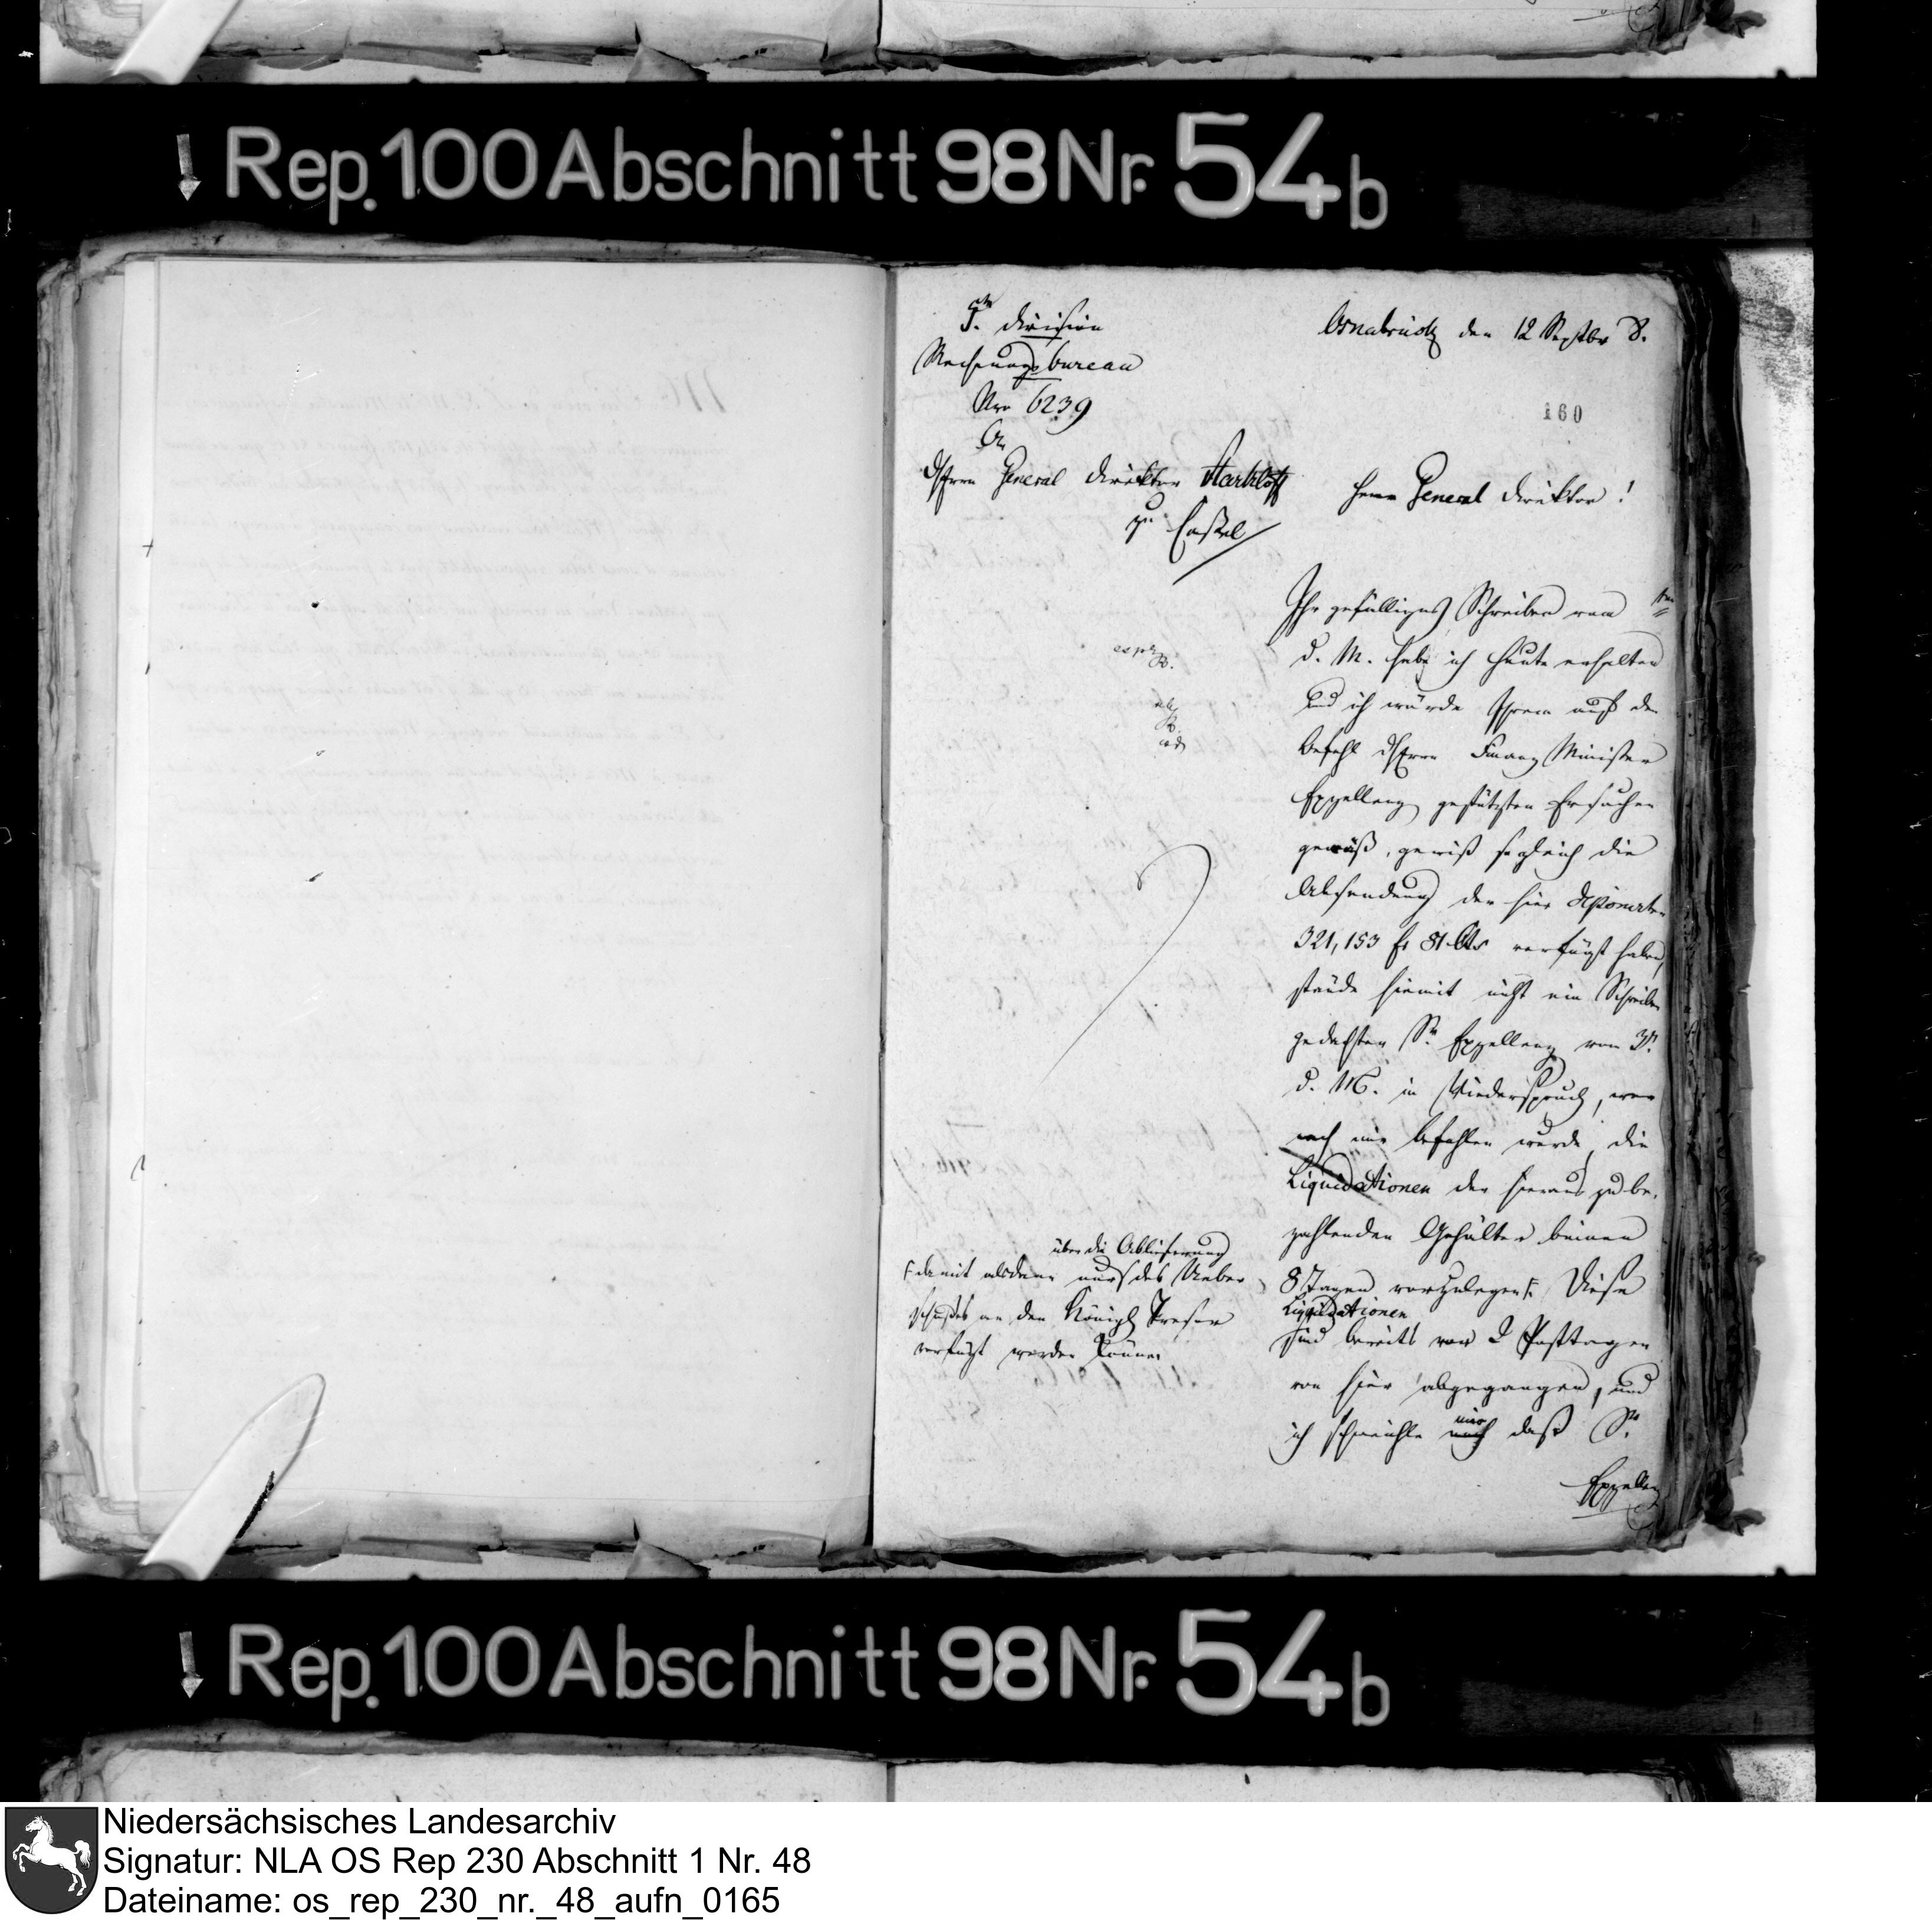 Rep. 100 Abschnitt 98 Nr. 54b
5te Division
Rechnungsbureau
Nro 6239
An
d. Herrn General Direktor Starkloff
zu Cassel
Osnabrück den 12 Septbr 8.
160
Herr General Direktor!
expd.
Ihr gefälliges Schreiben vom
d. M. habe ich heute erhalten
und ich würde Ihrem auf den
Befehl d. Herrn Finanz Minister
gestützten Ersuchen
gemäß, gewiß sogleich die
Absendung der hier deponirten
321,153 fr 81 Cts verfügt haben,
stände hiemit nicht ein Schreiben
gedachten Sr. vom 3t.
d. M. in Wiederspruch, wor
nach mir befohlen wurde, die
Liquidationen der hieraus zu be-
zahlenden Gehälter binnen
8 Tagen vorzulegen. Diese
Liquidationen
sind bereits vor 2 Posttagen
von hier abgegangen, und
ich schmeichle mir daß Sr.
über die Ablieferung
damit alsdann nur des Ueber
schußes an den Königl. Tresor
verfügt werden könne
Rep. 100 Abschnitt 98 Nr. 54b
Niedersächsisches Landesarchiv
Signatur: NLA OS Rep 230 Abschnitt 1 Nr. 48
Dateiname: os_rep_230_nr._48_aufn_0165